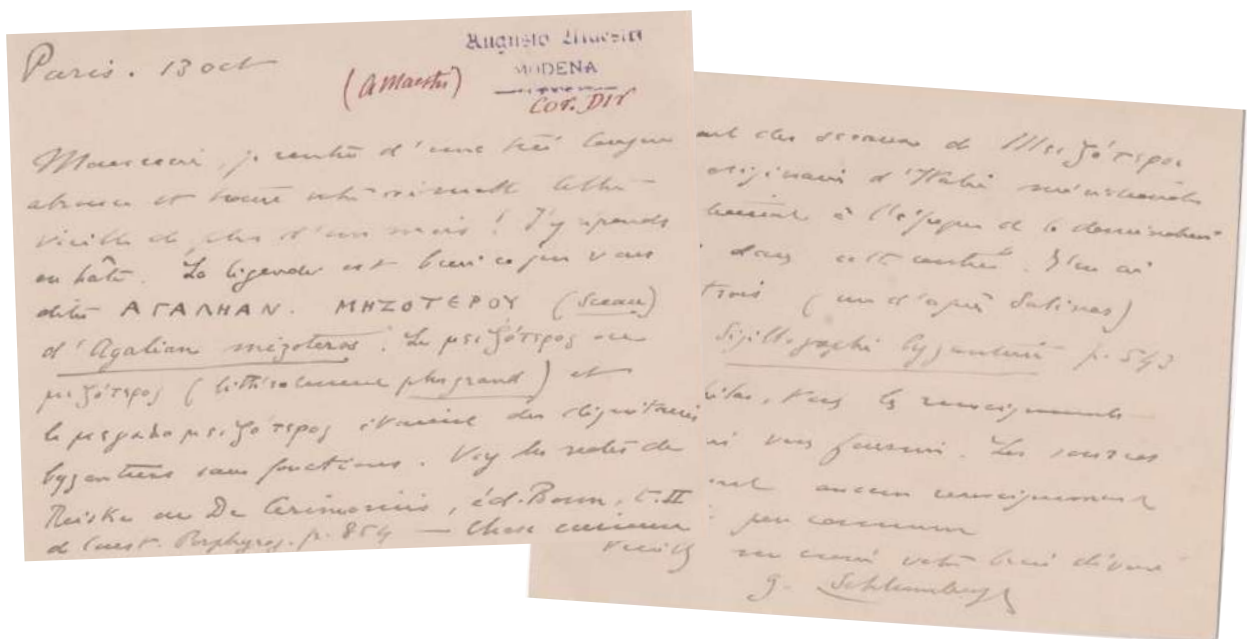 Paris. 13 oct
(A Maestri)
Augusto Maestri
MODENA
Cor. DIr
Monsieur, je rentre d'une très longue
absence et trouve votre aimable lettre
vieille de plus d'un mois ! J'y réponds
en hâte. La légende est bien ce que vous
dites ΑΓΑΛΗΑΝ. ΜΗΖΟΤΕΡΟΥ (Sceau)
d'Agalian mizoteros. Le μειζότερος ou
μειζότερος (littéralement plus grand) et
le étaient des dignitaires
byzantins sans fonctions. Voy les notes de
Reiske au De Cerimoniis, éd. Bonn, t. II
de Const. Porphyrog. p. 854 — Chose curieuse
des sceaux de Μειζότερος
originaires d'Italie méridionale
à l'époque de la domination
dans cette contrée. J'en ai
trois (un d'après Salinas)
Sigillographie byzantine p. 543
tous les renseignements
vous fournir. Les sources
aucun renseignement
peu commun
Veuillez me croire votre bien dévoué
G. Schlumberger